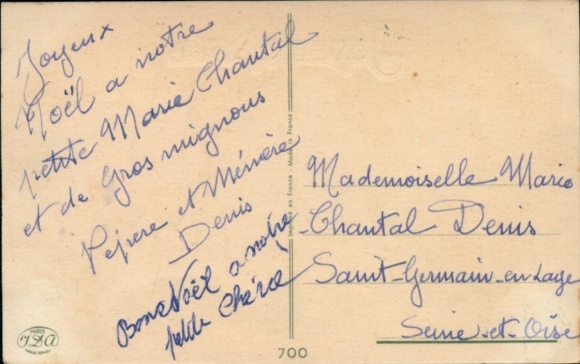 Joyeux
Noël a notre
petite Marie Chantal
et de Gros mignous
Pepere et Mémère
Denis
Bonne Noël a notre
petite Chérie
Mademoiselle Marie
Chantal Denis
Saint-Germain-en-Laye
Seine-et-Oise
Made in France
PARIS
700